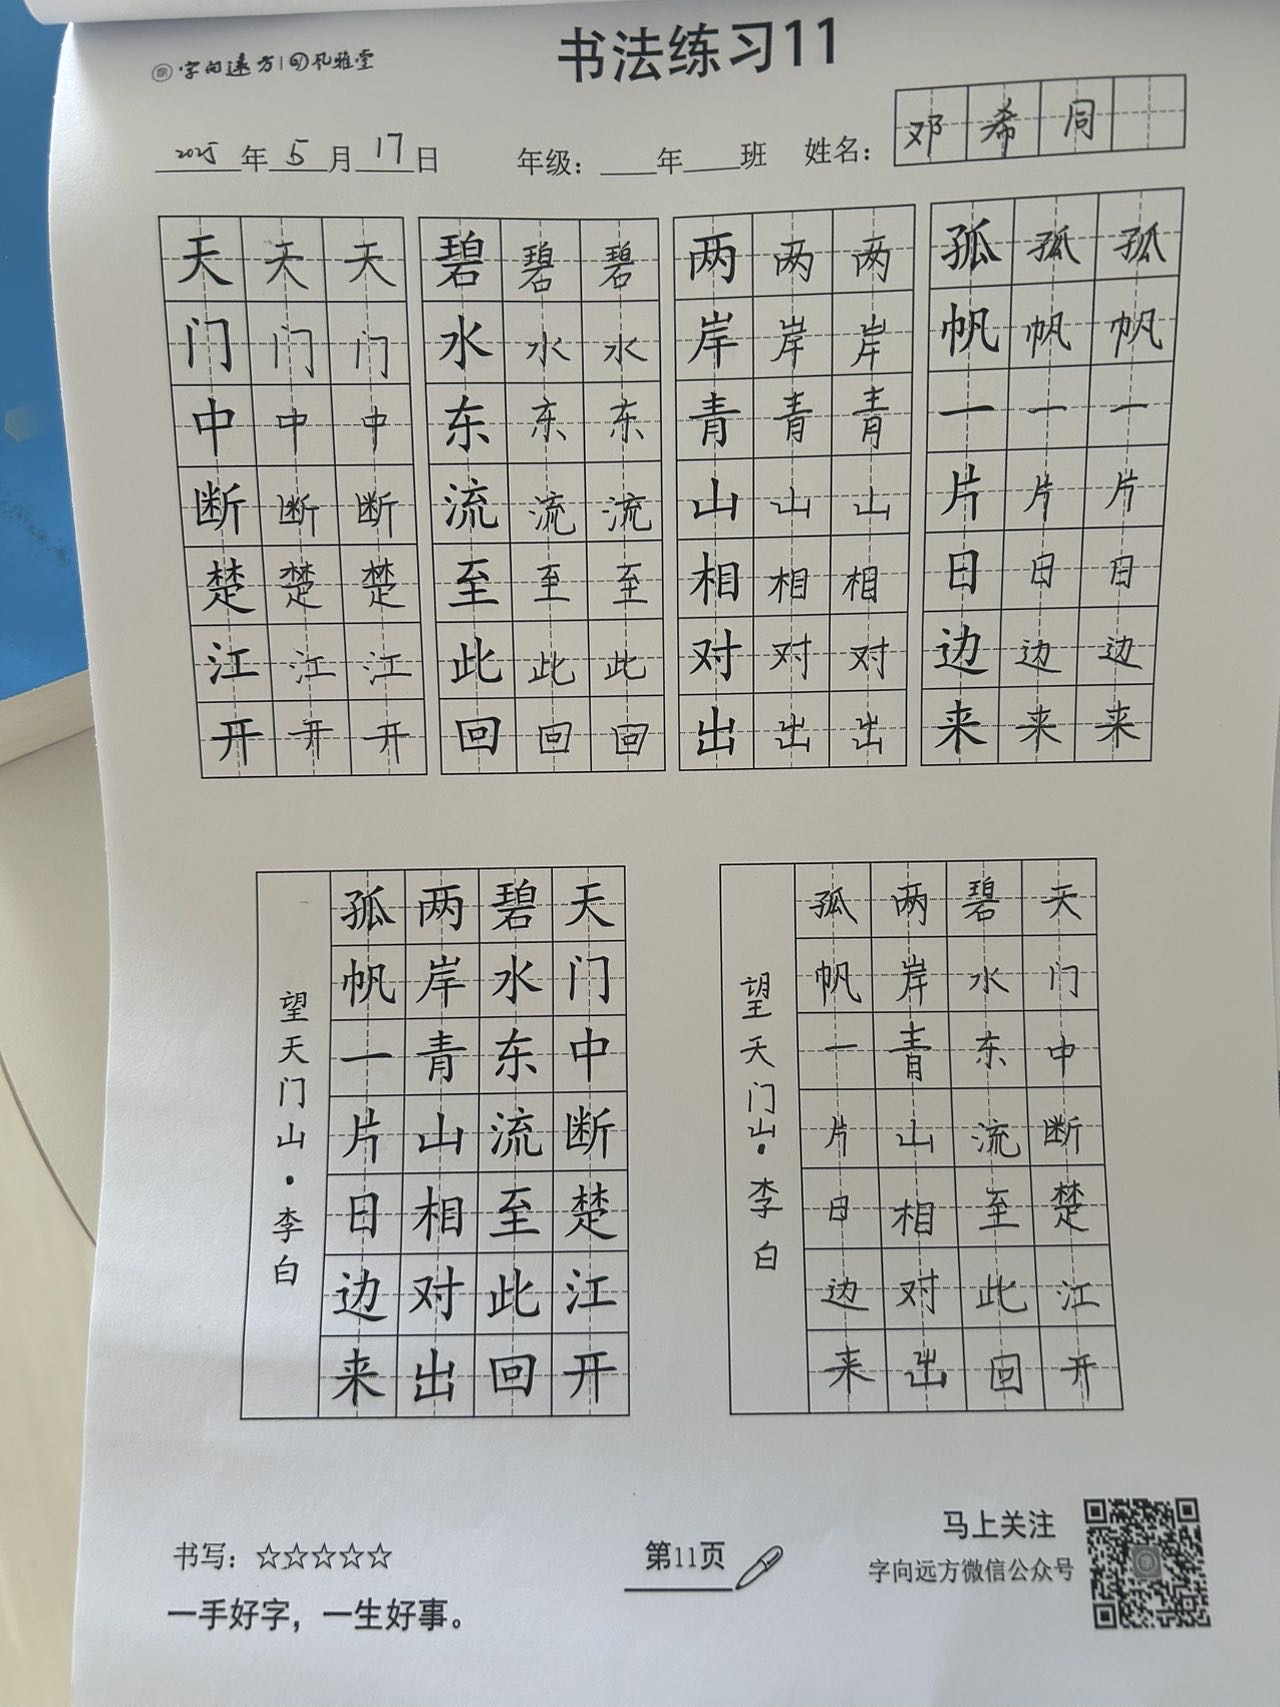 字向远方 | 风雅堂
书法练习11
2025年5月17日 年级：____年____班 姓名：邓希同
天天天 碧碧碧 两两两 孤孤孤
门门门 水水水 岸岸岸 帆帆帆
中中中 东东东 青青青 一一一
断断断 流流流 山山山 片片片
楚楚楚 至至至 相相相 日日日
江江江 此此此 对对对 边边边
开开开 回回回 出出出 来来来
天门中断楚江开
碧水东流至此回
两岸青山相对出
孤帆一片日边来
望天门山·李白
天门中断楚江开
碧水东流至此回
两岸青山相对出
孤帆一片日边来
望天门山·李白
书写：☆☆☆☆☆
一手好字，一生好事。
第11页
马上关注
字向远方微信公众号